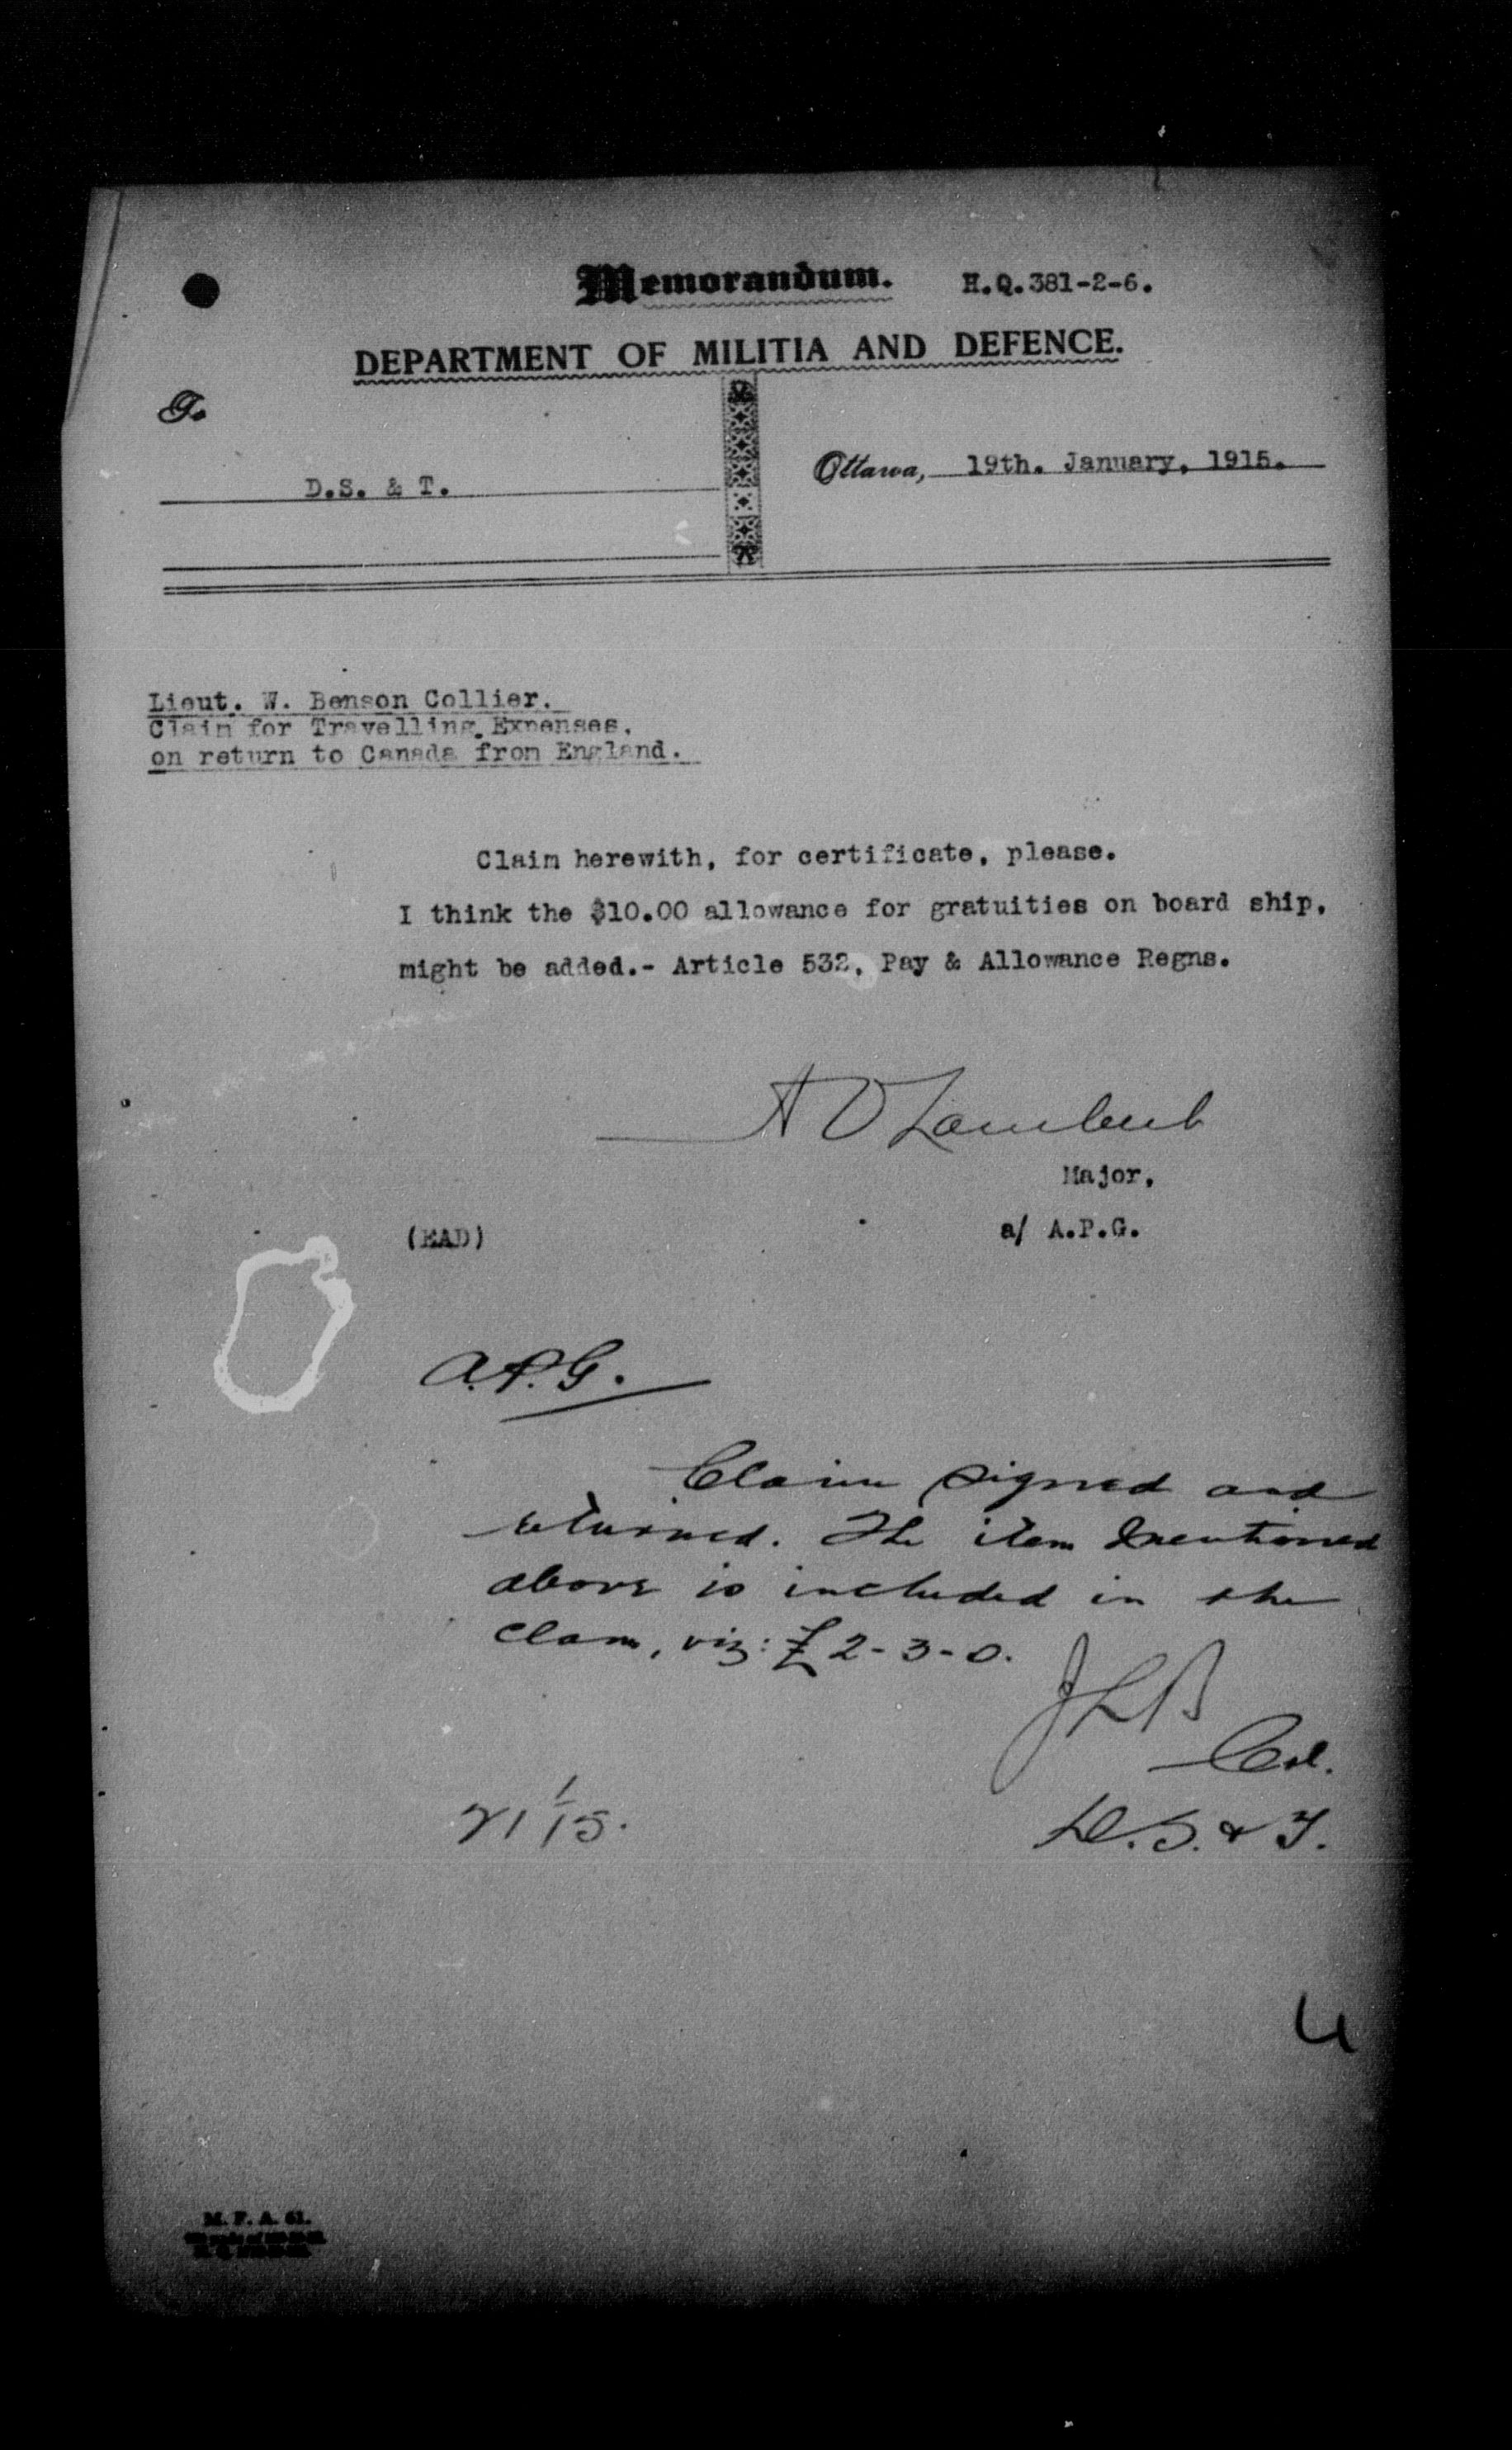 Memorandum. H.Q.381-2-6.
DEPARTMENT OF MILITIA AND DEFENCE.
To
D.S. & T.
Ottawa, 19th. January, 1915.
Lieut. W. Benson Collier.
Claim for Travelling Expenses,
on return to Canada from England.
Claim herewith, for certificate, please.
I think the $10.00 allowance for gratuities on board ship,
might be added.- Article 532, Pay & Allowance Regns.
A O Lambert
Major,
(EAD)
a/ A.P.G.
A.P.G.
Claim signed and
returned. The item mentioned
above is included in the
claim, viz: £2-3-0.
JLB
Col.
21/1/15.
D.S. & T.
4
M. F. A. 61.